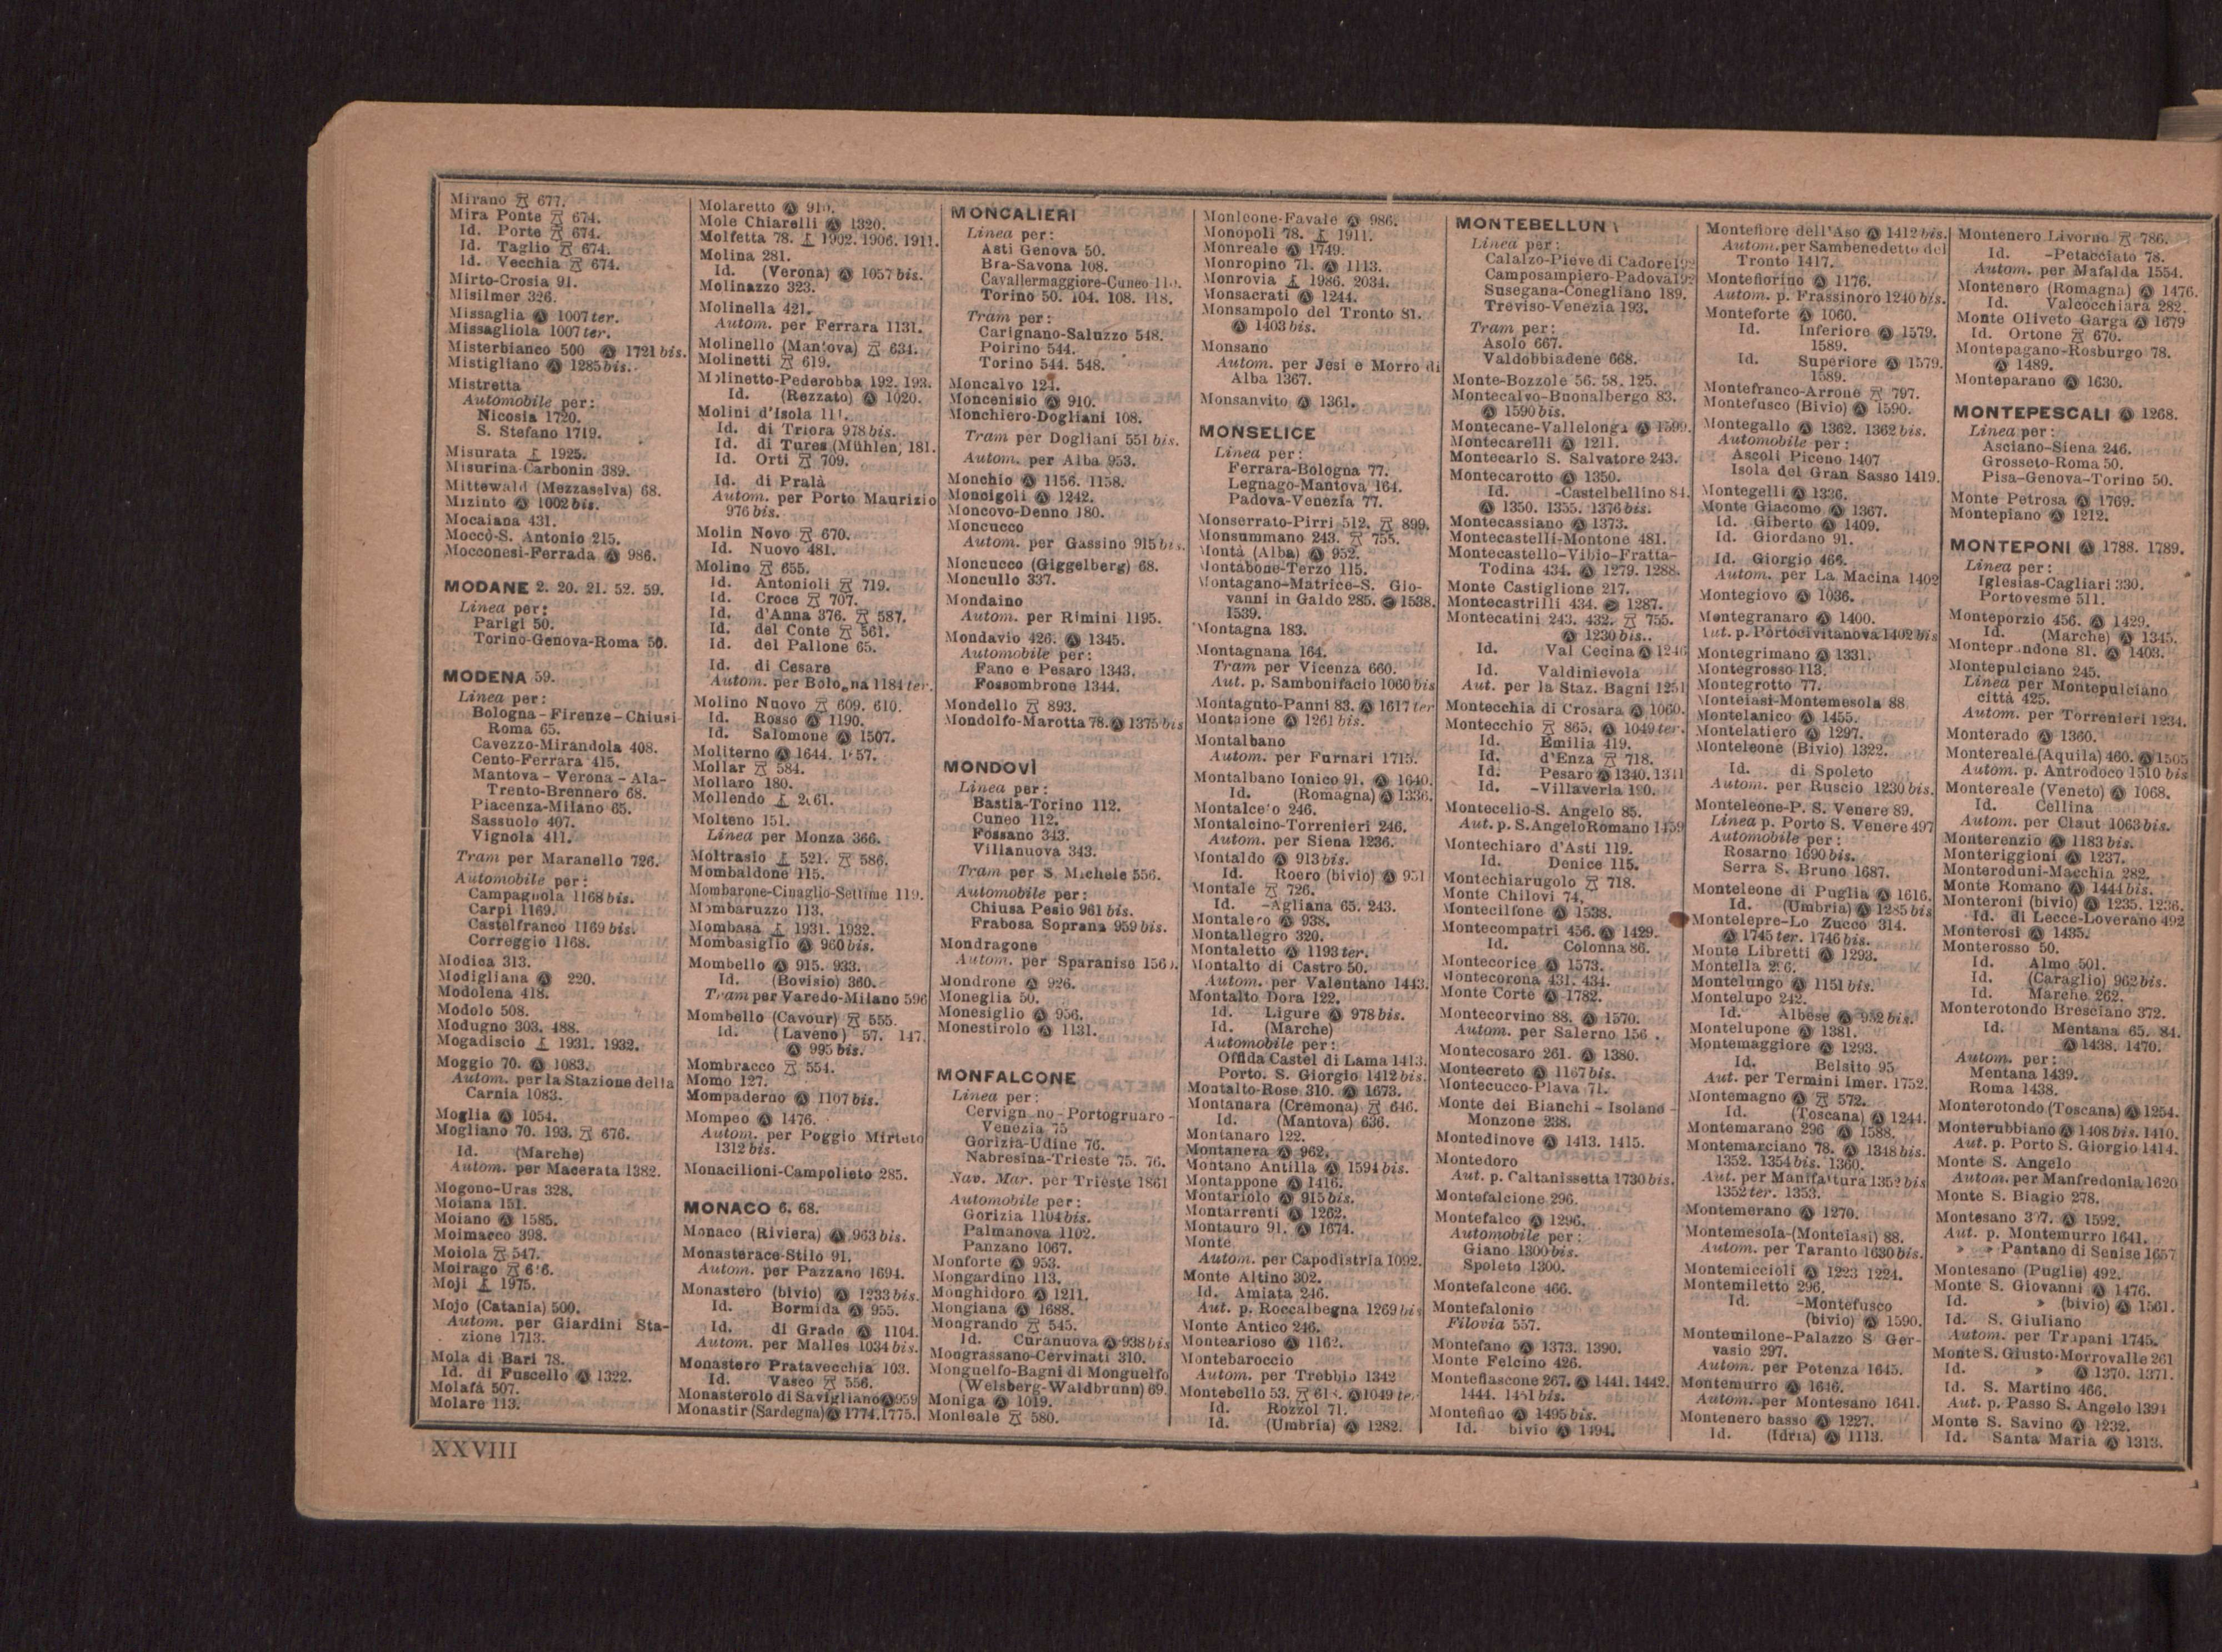 Mirano 677.
Mira Ponte 674.
Id. Porte 674.
Id. Taglio 674.
Id. Vecchia 674.
Mirto-Crosia 91.
Misilmer 326.
Missaglia Ⓐ 1007 ter.
Missagliola 1007 ter.
Misterbianco 500 Ⓐ 1721 bis.
Mistigliano Ⓐ 1285 bis.
Mistretta
Automobile per:
Nicosia 1720.
S. Stefano 1719.
Misurata 1925.
Misurina-Carbonin 389.
Mittewald (Mezzaselva) 68.
Mizinto Ⓐ 1002 bis.
Mocaiana 431.
Moccò-S. Antonio 215.
Mocconesi-Ferrada Ⓐ 986.
MODANE 2. 20. 21. 52. 59.
Linea per:
Parigi 50.
Torino-Genova-Roma 50.
MODENA 59.
Linea per:
Bologna-Firenze-Chiusi-
Roma 65.
Cavezzo-Mirandola 408.
Cento-Ferrara 415.
Mantova-Verona-Ala-
Trento-Brennero 68.
Piacenza-Milano 65.
Sassuolo 407.
Vignola 411.
Tram per Maranello 726.
Automobile per:
Campagnola 1168 bis.
Carpi 1169.
Castelfranco 1169 bis.
Correggio 1168.
Modica 313.
Modigliana Ⓐ 220.
Modolena 418.
Modolo 508.
Modugno 303. 488.
Mogadiscio 1931. 1932.
Moggio 70. Ⓐ 1083.
Autom. per la Stazione della
Carnia 1083.
Moglia Ⓐ 1054.
Mogliano 70. 193. 676.
Id. (Marche)
Autom. per Macerata 1382.
Mogoro-Uras 328.
Moiana 151.
Moiano Ⓐ 1585.
Moimacco 398.
Moiola 547.
Moirago
Moji 1975.
Mojo (Catania) 500.
Autom. per Giardini Sta-
zione 1713.
Mola di Bari 78.
Id. di Fuscello Ⓐ 1322.
Molafá 507.
Molare 113.
Molaretto Ⓐ
Mole Chiarelli Ⓐ 1320.
Molfetta 78. 1902. 1906. 1911.
Molina 281.
Id. (Verona) Ⓐ 1057 bis.
Molinazzo 323.
Molinella 421.
Autom. per Ferrara 1131.
Molinello (Mantova) 634.
Molinetti 619.
Molinetto-Pederobba 192. 193.
Id. (Rezzato) Ⓐ 1020.
Molini d'Isola
Id. di Triora 978 bis.
Id. di Tures (Mühlen) 181.
Id. Orti 709.
Id. di Pralà
Autom. per Porto Maurizio
976 bis.
Molin Novo 670.
Id. Nuovo 481.
Molino 655.
Id. Antonioli 719.
Id. Croce 707.
Id. d'Anna 376. 587.
Id. del Conte 561.
Id. del Pallone 65.
Id. di Cesare
Autom. per Bologna 1184 ter.
Molino Nuovo 609. 610.
Id. Rosso Ⓐ 1190.
Id. Salomone Ⓐ 1507.
Moliterno Ⓐ 1644.
Mollar 584.
Mollaro 180.
Mollendo
Molteno 151.
Linea per Monza 366.
Moltrasio 521. 586.
Mombaldone 115.
Mombarone-Cinaglio-Settime 119.
Mombaruzzo 113.
Mombasa 1931. 1932.
Mombasiglio Ⓐ 960 bis.
Mombello Ⓐ 915. 933.
Id. (Bovisio) 360.
Tram per Varedo-Milano 596
Mombello (Cavour) 555.
Id. (Laveno) 57. 147.
Ⓐ 995 bis.
Mombracco 554.
Momo 127.
Mompaderno Ⓐ 1107 bis.
Mompeo Ⓐ 1476.
Autom. per Poggio Mirteto
1312 bis.
Monacilioni-Campolieto 285.
MONACO 6. 68.
Monaco (Riviera) Ⓐ 963 bis.
Monasterace-Stilo 91.
Autom. per Pazzano 1694.
Monastero (bivio) Ⓐ 1233 bis.
Id. Bormida Ⓐ 955.
Id. di Grado Ⓐ 1104.
Autom. per Malles 1034 bis.
Monastero Pratavecchia 103.
Id. Vasco 556.
Monasterolo di Savigliano Ⓐ 959
Monastir (Sardegna) Ⓐ 1774. 1775.
MONCALIERI
Linea per:
Asti Genova 50.
Bra-Savona 108.
Cavallermaggiore-Cuneo
Torino 50. 104. 108. 118.
Tram per:
Carignano-Saluzzo 548.
Poirino 544.
Torino 544. 548.
Moncalvo 124.
Moncenisio Ⓐ 910.
Monchiero-Dogliani 108.
Tram per Dogliani 551 bis.
Autom. per Alba 953.
Monchio Ⓐ 1156. 1158.
Moncigoli Ⓐ 1242.
Moncovo-Denno 180.
Moncucco
Autom. per Gassino 915 bis.
Moncucco (Giggelberg) 68.
Moncullo 337.
Mondaino
Autom. per Rimini 1195.
Mondavio 426. Ⓐ 1345.
Automobile per:
Fano e Pesaro 1343.
Fossombrone 1344.
Mondello 893.
Mondolfo-Marotta 78. Ⓐ 1375 bis
MONDOVÌ
Linea per:
Bastia-Torino 112.
Cuneo 112.
Fossano 343.
Villanuova 343.
Tram per S. Michele 556.
Automobile per:
Chiusa Pesio 961 bis.
Frabosa Soprana 959 bis.
Mondragone
Autom. per Sparanise
Mondrone Ⓐ 926.
Moneglia 50.
Monesiglio Ⓐ 956.
Monestirolo Ⓐ 1131.
MONFALCONE
Linea per:
Cervignano-Portogruaro-
Venezia 75
Gorizia-Udine 76.
Nabresina-Trieste 75. 76.
Nav. Mar. per Trieste 1861
Automobile per:
Gorizia 1104 bis.
Palmanova 1102.
Panzano 1067.
Monforte Ⓐ 953.
Mongardino 113.
Monghidoro Ⓐ 1211.
Mongiana Ⓐ 1688.
Mongrando 545.
Id. Curanuova Ⓐ 938 bis
Moograssano-Cervinati 310.
Monguelfo-Bagni di Monguelfo
(Welsberg-Waldbrunn) 69.
Moniga Ⓐ 1019.
Monleale 580.
Monleone-Favale Ⓐ 986.
Monopoli 78. 1911.
Monreale Ⓐ 1749.
Monropino 71. Ⓐ 1113.
Monrovia 1986. 2034.
Monsacrati Ⓐ 1244.
Monsampolo del Tronto 81.
Ⓐ 1403 bis.
Monsano
Autom. per Jesi e Morro di
Alba 1367.
Monsanvito Ⓐ 1361.
MONSELICE
Linea per:
Ferrara-Bologna 77.
Legnago-Mantova 164.
Padova-Venezia 77.
Monserrato-Pirri 512. 899.
Monsummano 243. 755.
Montà (Alba) Ⓐ 952.
Montabone-Terzo 115.
Montagano-Matrice-S. Gio-
vanni in Galdo 285. 1538.
1539.
Montagna 183.
Montagnana 164.
Tram per Vicenza 660.
Aut. p. Sambonifacio 1060 bis
Montaguto-Panni 83. Ⓐ 1617 ter
Montaione Ⓐ 1261 bis.
Montalbano
Autom. per Furnari 1715.
Montalbano Ionico 91. Ⓐ 1640.
Id. (Romagna) Ⓐ 1336.
Montalceto 246.
Montalcino-Torrenieri 246.
Autom. per Siena 1236.
Montaldo Ⓐ 913 bis.
Id. Roero (bivio) Ⓐ 951
Montale 726.
Id. -Agliana 65. 243.
Montalero Ⓐ 938.
Montallegro 320.
Montaletto Ⓐ 1193 ter.
Montalto di Castro 50.
Autom. per Valentano 1443.
Montalto Dora 122.
Id. Ligure Ⓐ 978 bis.
Id. (Marche)
Automobile per:
Offida Castel di Lama 1413.
Porto. S. Giorgio 1412 bis.
Montalto-Rose 310. Ⓐ 1673.
Montanara (Cremona) 646.
Id. (Mantova) 636.
Montanaro 122.
Montanera Ⓐ 962.
Montano Antilia Ⓐ 1594 bis.
Montappone Ⓐ 1416.
Montariolo Ⓐ 915 bis.
Montarrenti Ⓐ 1262.
Montauro 91. Ⓐ 1674.
Monte
Autom. per Capodistria 1092.
Monte Altino 302.
Id. Amiata 246.
Aut. p. Roccalbegna 1269 bis
Monte Antico 246.
Montearioso Ⓐ 1162.
Montebaroccio
Autom. per Trebbio 1342
Montebello 53. Ⓐ 1049 ter
Id. Rozzol 71.
Id. (Umbria) Ⓐ 1282.
MONTEBELLUNA
Linea per:
Calalzo-Pieve di Cadore 192
Camposampiero-Padova 192
Susegana-Conegliano 189.
Treviso-Venezia 193.
Tram per:
Asolo 667.
Valdobbiadene 668.
Monte-Bozzole 56. 58. 125.
Montecalvo-Buonalbergo 83.
Ⓐ 1590 bis.
Montecane-Vallelonga Ⓐ 1599.
Montecarelli Ⓐ 1211.
Montecarlo S. Salvatore 243.
Montecarotto Ⓐ 1350.
Id. -Castelbellino 84.
Ⓐ 1350. 1355. 1376 bis.
Montecassiano Ⓐ 1373.
Montecastelli-Montone 481.
Montecastello-Vibio-Fratta-
Todina 434. Ⓐ 1279. 1288.
Monte Castiglione 217.
Montecastrilli 434. 1287.
Montecatini 243. 432. 755.
Ⓐ 1230 bis.
Id. Val Cecina Ⓐ 1246
Id. Valdinievola
Aut. per la Staz. Bagni 1251
Montecchia di Crosara Ⓐ 1060.
Montecchio 865. Ⓐ 1049 ter.
Id. Emilia 419.
Id. d'Enza 718.
Id. Pesaro Ⓐ 1340. 1341
Id. -Villaverla 190.
Montecelio-S. Angelo 85.
Aut. p. S. Angelo Romano 1459
Montechiaro d'Asti 119.
Id. Denice 115.
Montechiarugolo 718.
Monte Chilovi 74.
Montecilfone Ⓐ 1538.
Montecompatri 456. Ⓐ 1429.
Id. Colonna 86.
Montecorice Ⓐ 1573.
Montecorona 431. 434.
Monte Corte Ⓐ 1782.
Montecorvino 88. Ⓐ 1570.
Autom. per Salerno
Montecosaro 261. Ⓐ 1380.
Montecreto Ⓐ 1167 bis.
Montecucco-Plava 71.
Monte dei Bianchi-Isolano-
Monzone 238.
Montedinove Ⓐ 1413. 1415.
Montedoro
Aut. p. Caltanissetta 1730 bis.
Montefalcione 296.
Montefalco Ⓐ 1296.
Automobile per:
Giano 1300 bis.
Spoleto 1300.
Montefalcone 466.
Montefalonio
Filovia 557.
Montefano Ⓐ 1373. 1390.
Monte Felcino 426.
Montefiascone 267. Ⓐ 1441. 1442.
1444. 1451 bis.
Montefino Ⓐ 1495 bis.
Id. bivio Ⓐ 1494.
Montefiore dell'Aso Ⓐ 1412 bis.
Autom. per Sambenedetto del
Tronto 1417.
Montefiorino Ⓐ 1176.
Autom. p. Frassinoro 1240 bis.
Monteforte Ⓐ 1060.
Id. Inferiore Ⓐ 1579.
1589.
Id. Superiore Ⓐ 1579.
1589.
Montefranco-Arrone 797.
Montefusco (Bivio) Ⓐ 1590.
Montegallo Ⓐ 1362. 1362 bis.
Automobile per:
Ascoli Piceno 1407
Isola del Gran Sasso 1419.
Montegelli Ⓐ 1336.
Monte Giacomo Ⓐ 1367.
Id. Giberto Ⓐ 1409.
Id. Giordano 91.
Id. Giorgio 466.
Autom. per La Macina 1402
Montegiovo Ⓐ 1036.
Montegranaro Ⓐ 1400.
Aut. p. Portocivitanova 1402 bis
Montegrimano Ⓐ 1331.
Montegrosso 113.
Montegrotto 77.
Monteiasi-Montemesola 88
Montelanico Ⓐ 1455.
Montelatiero Ⓐ 1297.
Monteleone (Bivio) 1322.
Id. di Spoleto
Autom. per Ruscio 1230 bis.
Monteleone-P. S. Venere 89.
Linea p. Porto S. Venere 497
Automobile per:
Rosarno 1690 bis.
Serra S. Bruno 1687.
Monteleone di Puglia Ⓐ 1616.
Id. (Umbria) Ⓐ 1285 bis
Montelepre-Lo Zucco 314.
Ⓐ 1745 ter. 1746 bis.
Monte Libretti Ⓐ 1293.
Montella
Montelungo Ⓐ 1151 bis.
Montelupo 242.
Id. Albese Ⓐ 952 bis.
Montelupone Ⓐ 1381.
Montemaggiore Ⓐ 1293.
Id. Belsito 95
Aut. per Termini Imer. 1752.
Montemagno Ⓐ 572.
Id. (Toscana) Ⓐ 1244.
Montemarano 296 Ⓐ 1588.
Montemarciano 78. Ⓐ 1348 bis.
1352. 1354 bis. 1360.
Aut. per Manifattura 1352 bis
1352 ter. 1353.
Montemerano Ⓐ 1270.
Montemesola-(Monteiasi) 88.
Autom. per Taranto 1630 bis.
Montemiccioli Ⓐ 1223 1224.
Montemiletto 296.
Id. -Montefusco
(bivio) Ⓐ 1590.
Montemilone-Palazzo S Ger-
vasio 297.
Autom. per Potenza 1645.
Montemurro Ⓐ 1646.
Autom. per Montesano 1641.
Montenero basso Ⓐ 1227.
Id. (Idria) Ⓐ 1113.
Montenero Livorno 786.
Id. -Petacciato 78.
Autom. per Mafalda 1554.
Montenero (Romagna) Ⓐ 1476.
Id. Valcocchiara 282.
Monte Oliveto Garga Ⓐ 1679
Id. Ortone 670.
Montepagano-Rosburgo 78.
Ⓐ 1489.
Monteparano Ⓐ 1630.
MONTEPESCALI Ⓐ 1268.
Linea per:
Asciano-Siena 246.
Grosseto-Roma 50.
Pisa-Genova-Torino 50.
Monte Petrosa Ⓐ 1769.
Montepiano Ⓐ 1212.
MONTEPONI Ⓐ 1788. 1789.
Linea per:
Iglesias-Cagliari 330.
Portovesme 511.
Monteporzio 456. Ⓐ 1429.
Id. (Marche) Ⓐ 1345.
Monteprandone 81. Ⓐ 1403.
Montepulciano 245.
Linea per Montepulciano
città 425.
Autom. per Torrenieri 1234.
Monterado Ⓐ 1360.
Montereale (Aquila) 460. Ⓐ 1505
Autom. p. Antrodoco 1510 bis
Montereale (Veneto) Ⓐ 1068.
Id. Cellina
Autom. per Claut 1063 bis.
Monterenzio Ⓐ 1183 bis.
Monteriggioni Ⓐ 1237.
Monteroduni-Macchia 282.
Monte Romano Ⓐ 1444 bis.
Monteroni (bivio) Ⓐ 1235. 1236.
Id. di Lecce-Loverano 492
Monterosi Ⓐ 1435.
Monterosso 50.
Id. Almo 501.
Id. (Caraglio) 962 bis.
Id. Marche 262.
Monterotondo Bresciano 372.
Id. Mentana 65. 84.
Ⓐ 1438. 1470.
Autom. per:
Mentana 1439.
Roma 1438.
Monterotondo (Toscana) Ⓐ 1254.
Monterubbiano Ⓐ 1408 bis. 1410.
Aut. p. Porto S. Giorgio 1414.
Monte S. Angelo
Autom. per Manfredonia 1620
Monte S. Biagio 278.
Montesano Ⓐ 1592.
Aut. p. Montemurro 1641.
» » Pantano di Senise 1657
Montesano (Puglie) 492.
Monte S. Giovanni Ⓐ 1476.
Id. » (bivio) Ⓐ 1561.
Id. S. Giuliano
Autom. per Trapani 1745.
Monte S. Giusto-Morrovalle 261
Id. » Ⓐ 1370. 1371.
Id. S. Martino 466.
Aut. p. Passo S. Angelo 1394
Monte S. Savino Ⓐ 1232.
Id. Santa Maria Ⓐ 1313.
XXVIII